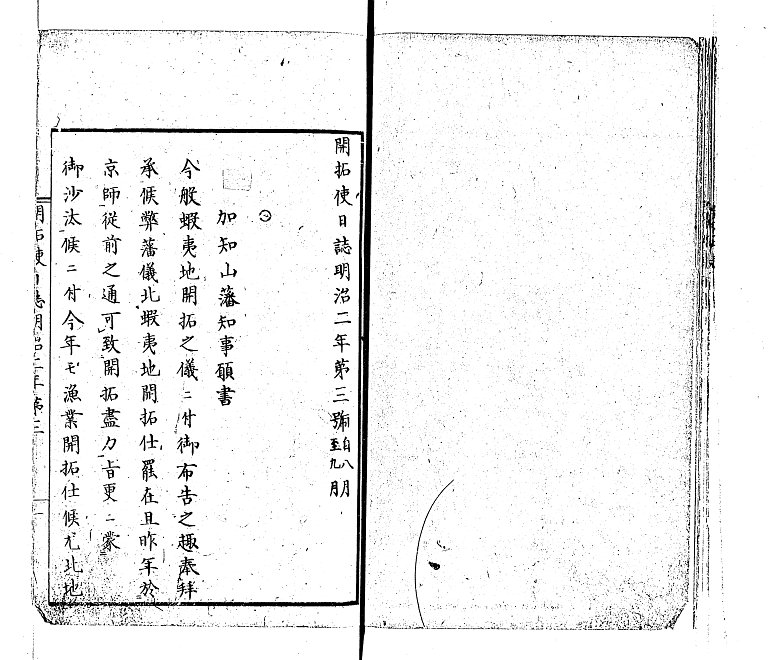 開拓使日誌明治二年第三號自八月至九月
加知山藩知事願書
今般蝦夷地開拓之儀ニ付御布告之趣奉拜
承候弊藩儀北蝦夷地開拓仕罷在且昨年於
京師従前之通可致開拓盡力旨更ニ蒙
御沙汰候ニ付今年モ漁業開拓仕候尤北地
開拓使日誌明治二年第三